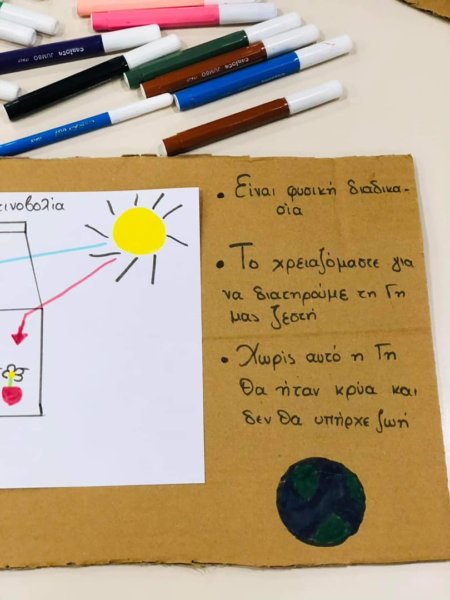 Carioca JUMBO
JUMBO
τινοβολία
• Είναι φυσική διαδικα-
σία
• Το χρειαζόμαστε για
να διατηρούμε τη Γη
μας ζεστή
• Χωρίς αυτό η Γη
θα ήταν κρύα και
δεν θα υπήρχε ζωή